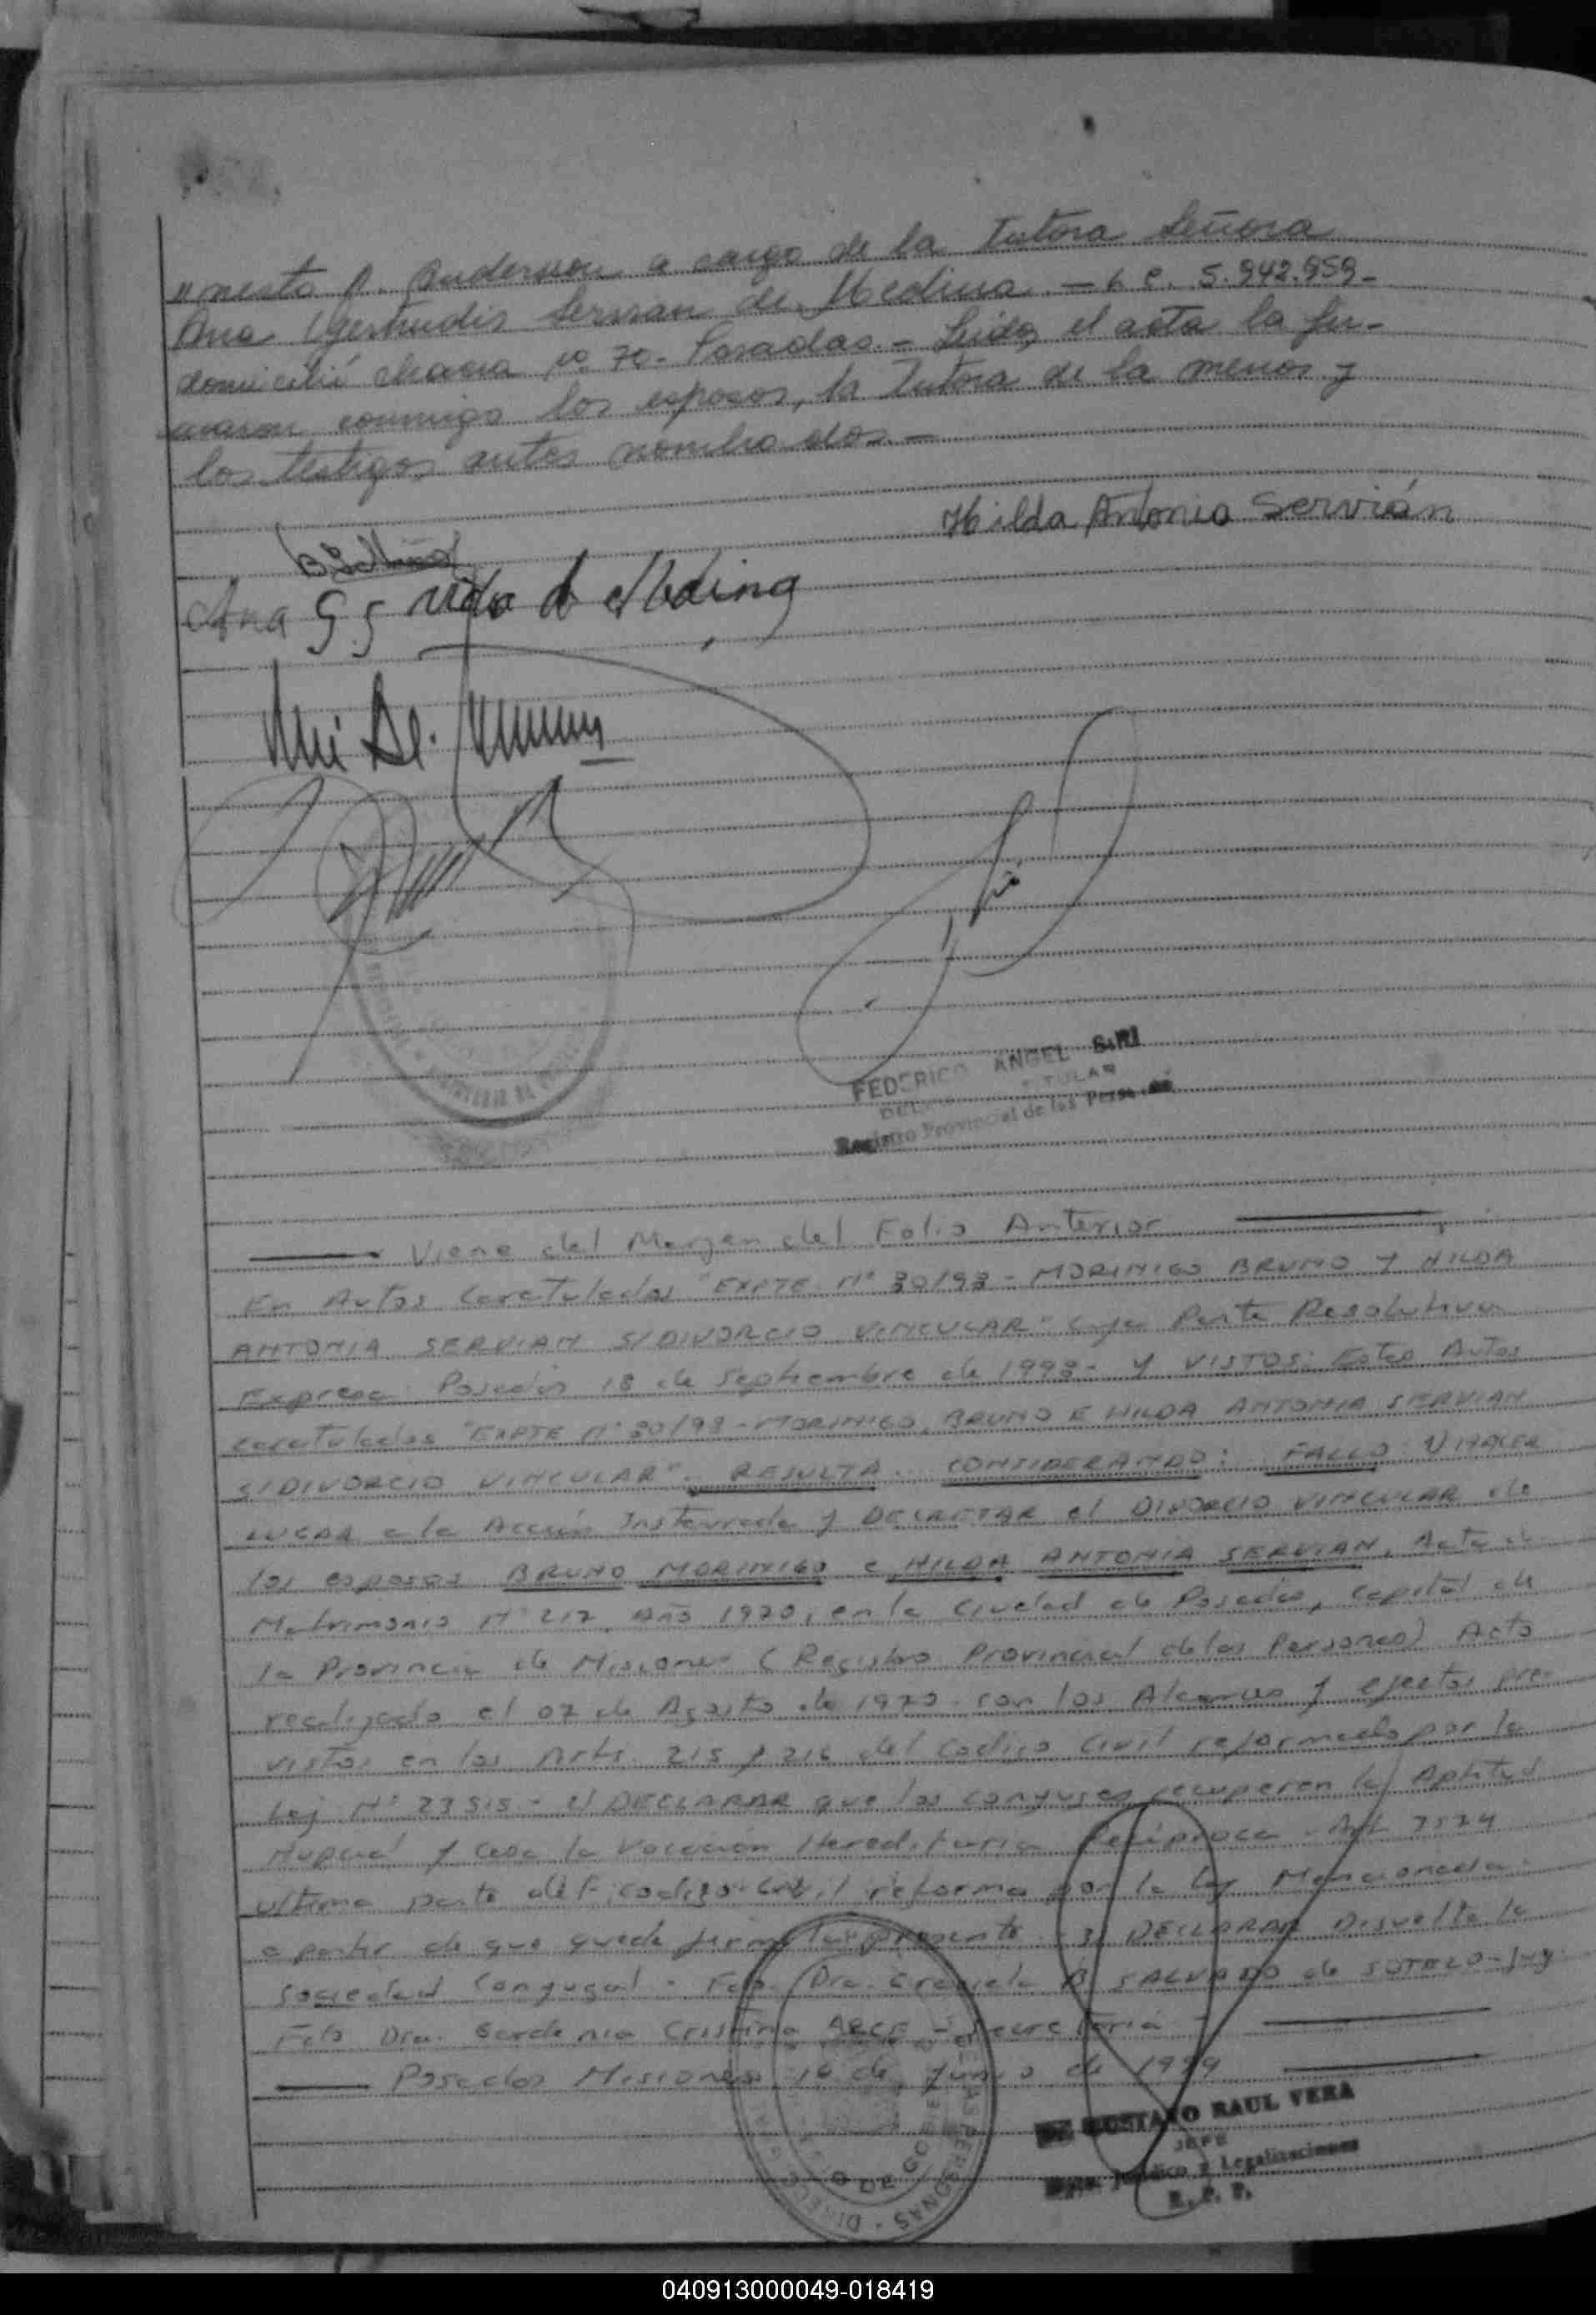 a cargo de la Tutora Señora
Ana Gertrudis Servian de Medina. - L. C. 5.942.959-
domicilio chacra nº 70- Posadas. - Leida el acta la fir-
maron conmigo los esposos, la Tutora de la menor y
los testigos antes nombrados. -
Hilda Antonia Servián
Ana G S de Medina
FEDERICO ANGEL SIRI
TITULAR
Registro Provincial de las Personas
Viene del Margen del Folio Anterior
En Autos Caratulados "EXPTE Nº 30/98 - MORINIGO BRUNO Y HILDA
ANTONIA SERVIAN S/DIVORCIO VINCULAR" cuya Parte Resolutiva
Expresa: Posadas 18 de Septiembre de 1998- Y VISTOS: Estos Autos
caratulados "EXPTE Nº 30/98 - MORINIGO, BRUNO E HILDA ANTONIA SERVIAN
S/DIVORCIO VINCULAR". RESULTA. CONSIDERANDO: FALLO: 1) HACER
LUGAR a la Acción Instaurada y DECRETAR el DIVORCIO VINCULAR de
los esposos BRUNO MORINIGO e HILDA ANTONIA SERVIAN, Acta de
Matrimonio Nº 217 Año 1970, en la Ciudad de Posadas, capital de
la Provincia de Misiones (Registro Provincial de las Personas) Acto
realizado el 07 de Agosto de 1970 - con los Alcances y efectos pre-
vistos en los Arts. 215 y 216 del Codigo Civil reformado por la
Ley Nº 23515 - 2) DECLARAR que los conyuges recuperen la Aptitud
Nupcial y cesa la Vocación Hereditaria Reciproca - Art 3574
ultima parte del codigo civil reforma por la ley Mencionada
a partir de que quede firme la presente. 3) DECLARAR Disuelta la
Sociedad Conyugal. Fdo. Dra. Graciela B SALVADO de SOTELO - Juez.
Fdo Dra. Gardenia Cristina ARCE - Secretaria -
Posadas Misiones 16 de Junio de 1999
GUSTAVO RAUL VERA
JEFE
Dpto. Jurídico y Legalizaciones
R. P. P.
040913000049-018419